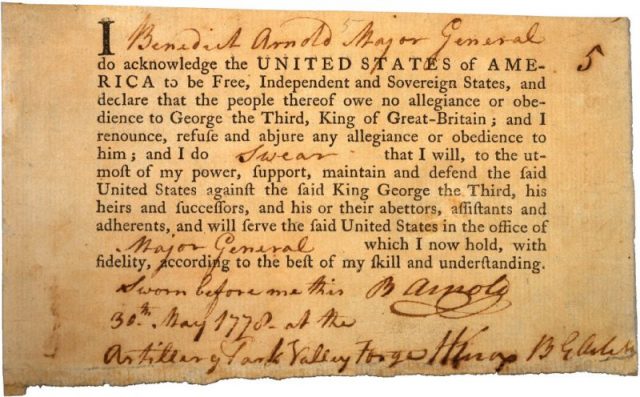 I Benedict Arnold Major General
do acknowledge the UNITED STATES of AME-
RICA to be Free, Independent and Sovereign States, and
declare that the people thereof owe no allegiance or obe-
dience to George the Third, King of Great-Britain; and I
renounce, refuſe and abjure any allegiance or obedience to
him; and I do swear that I will, to the ut-
moſt of my power, ſupport, maintain and defend the ſaid
United States againſt the ſaid King George the Third, his
heirs and ſucceſſors, and his or their abettors, aſſiſtants and
adherents, and will ſerve the ſaid United States in the office of
Major General which I now hold, with
fidelity, according to the beſt of my ſkill and underſtanding.
Sworn before me this B Arnold
30th May 1778 - at the
Artillery Park Valley Forge HKnox B G Artil
5